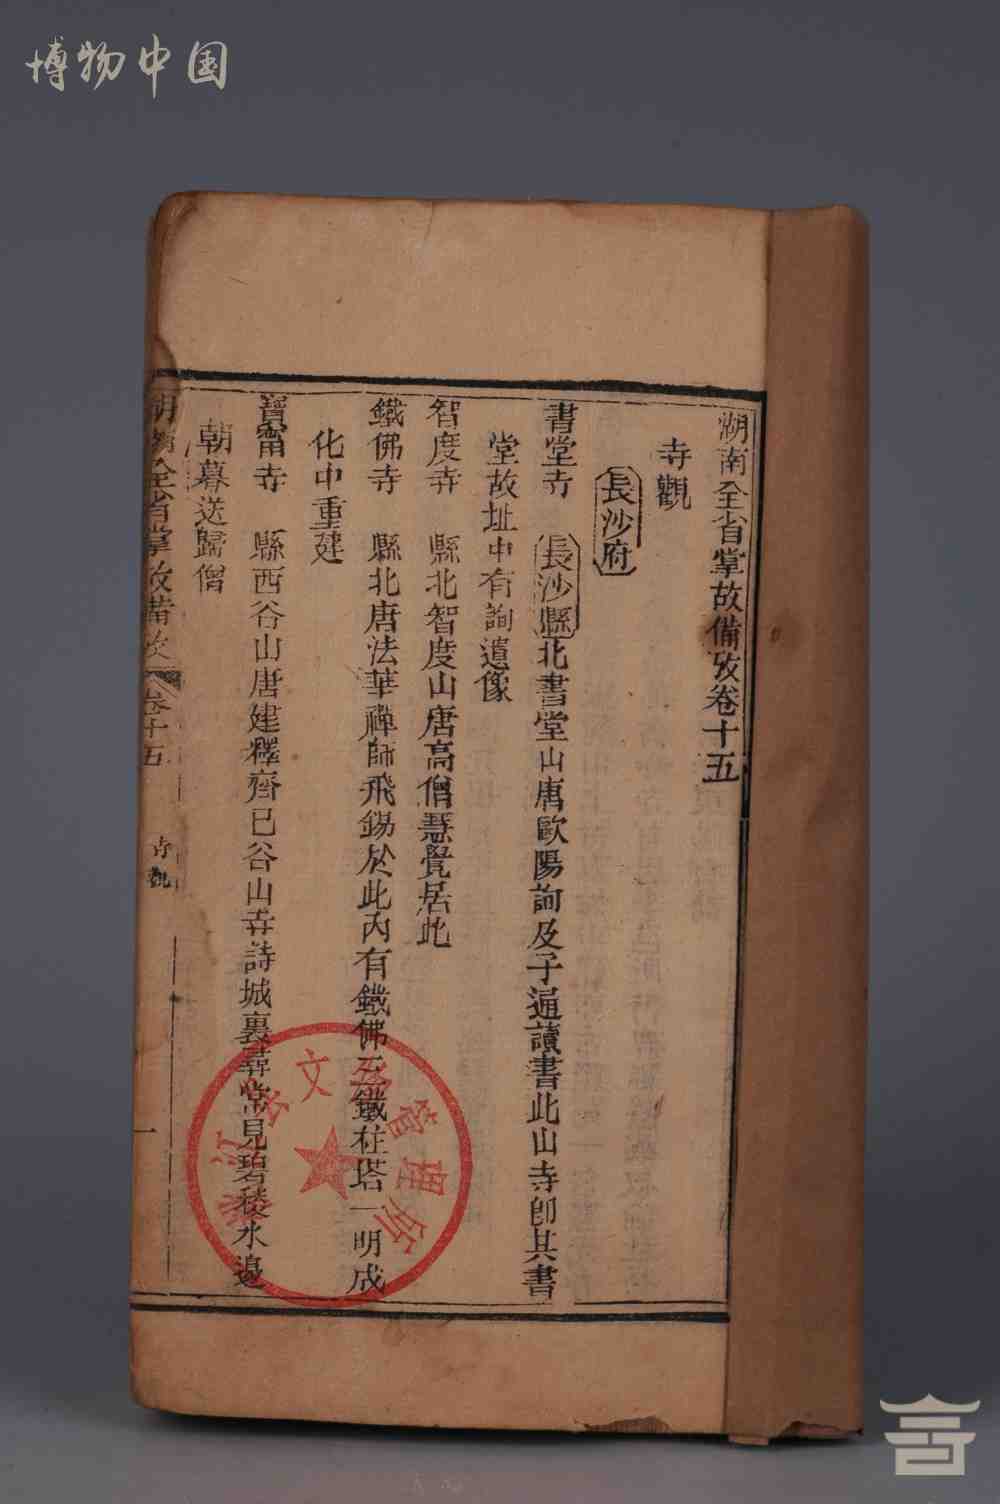 博物中国
湖南全省掌故備攷卷十五
寺觀
長沙府
書堂寺 長沙縣北書堂山唐歐陽詢及子通讀書此山寺卽其書
堂故址中有詢遺像
智度寺 縣北智度山唐高僧慧覺居此
鐵佛寺 縣北唐法華禪師飛錫於此內有鐵佛三鐵柱塔一明成
化中重建
寶甯寺 縣西谷山唐建釋齊已谷山寺詩城裏尋常見碧稜水邊
朝暮送歸僧
湖南全省掌故備攷 卷十五 寺觀 一
文物管理所